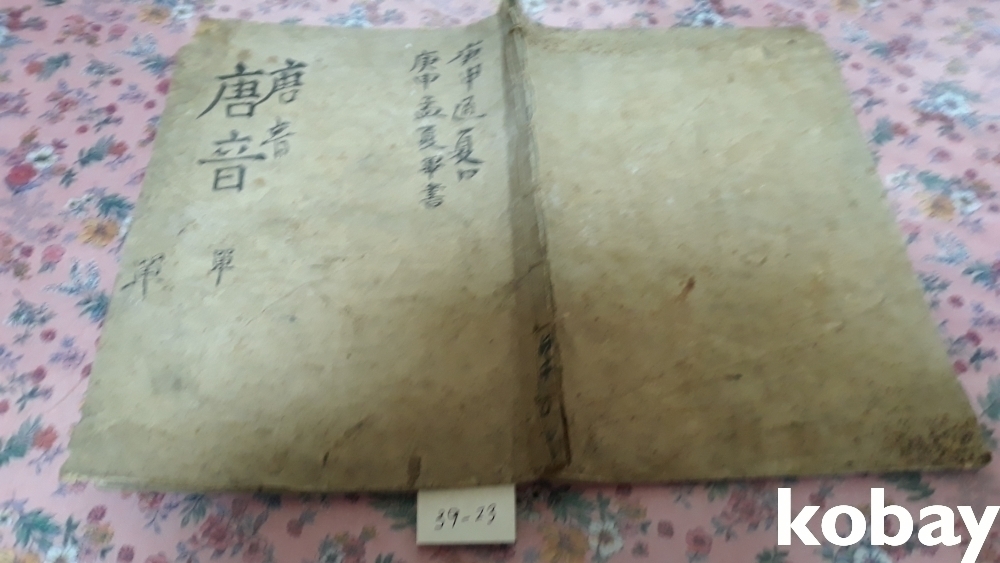 庚申孟夏日
庚申孟夏畢書
唐音
唐音
單
單
39-23
kobay